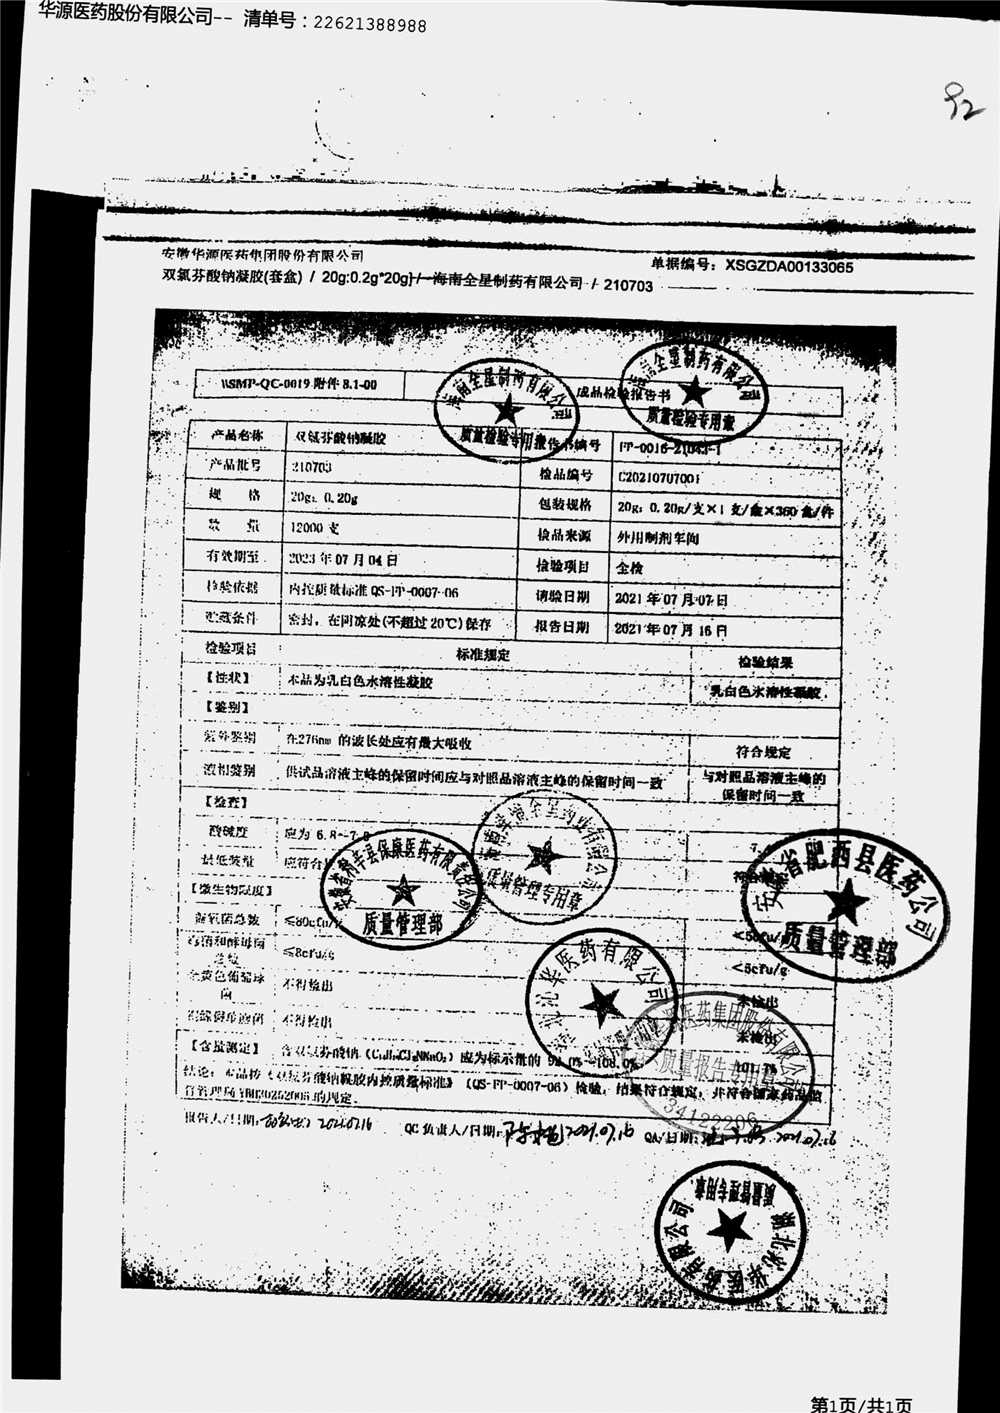 华源医药股份有限公司-- 清单号：22621388988
92
安徽华源医药集团股份有限公司
单据编号： XSGZDA00133065
双氯芬酸钠凝胶(套盒) / 20g:0.2g*20g}/ 海南全星制药有限公司 / 210703
\\SMP-QC-0019 附件 8.1-00 成品检验报告书
海南全星制药有限公司
质量检验专用章
海南全星制药有限公司
质量检验专用章
产品名称 双氯芬酸钠凝胶 报告书编号
产品批号 210703 检品编号 C20210707001
规 格 20g：0.20g 包装规格 20g：0.20g/支×1支/盒×360盒/件
数 量 12000 支 检品来源 外用制剂车间
有效期至 2023 年 07 月 04 日 检验项目 全检
检验依据 内控质量标准 QS-FP-0007-06 请验日期 2021 年 07 月 07 日
贮藏条件 密封，在阴凉处(不超过 20℃)保存 报告日期 2021 年 07 月 16 日
检验项目 标准规定 检验结果
【性状】 本品为乳白色水溶性凝胶 乳白色水溶性凝胶
【鉴别】
紫外鉴别 在276nm 的波长处应有最大吸收 符合规定
液相鉴别 供试品溶液主峰的保留时间应与对照品溶液主峰的保留时间一致 与对照品溶液主峰的
保留时间一致
【检查】
酸碱度 应为 6.8~7.8
最低装量 应符合
【微生物限度】
需氧菌总数 ≤80cfu/g
霉菌和酵母菌
总数 ≤8cfu/g <5cfu/g
金黄色葡萄球
菌 不得检出 未检出
铜绿假单胞菌 不得检出 未检出
【含量测定】 含双氯芬酸钠 应为标示量的 101.7%
结论：本品按《双氯芬酸钠凝胶内控质量标准》（QS-FP-0007-06）检验，结果符合规定，并符合国家药品监
报告人/日期： QC 负责人/日期： QA/日期：
质量管理专用章
质量管理部
安徽省肥西县医药公司
质量管理部
湖北沁华医药有限公司
质量报告专用章
34122206
湖北沁华医药有限公司
质量管理专用章
第1页/共1页